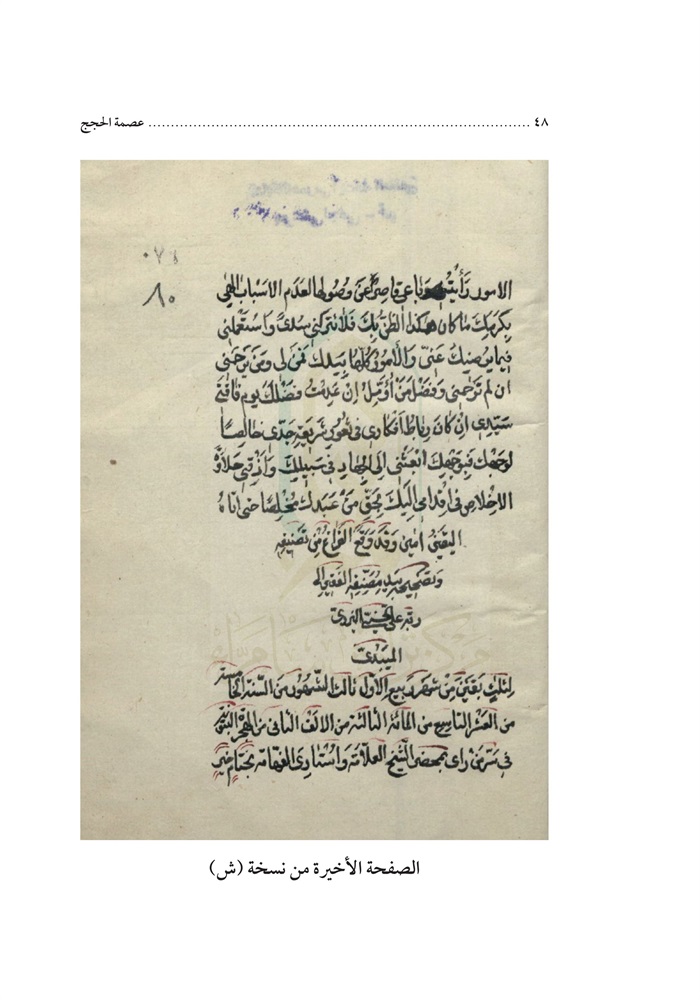 ٤٨ ................................................................ عصمة الحجج
٠٧٩
٨٠
الامور رأيتني باعي قاصرًا عن وصولها لعدم الاسباب الهي
بكرمك ما كان هكذا الظن بك فلا تتركني سدىً واستعملني
فيما يرضيك عني والأمور كلها بيدك فمن لي ومن يرحمني
ان لم ترحمني وفضل من أؤمل إن عدمت فضلك يوم فاقتي
سيدي ان كان رباط افكاري في ثغور شريعة جدي خالصًا
لوجهك فبوجهك ابعثني الى الجهاد في سبيلك وارزقني حلاوة
الاخلاص في اقدامي اليك بحق من عبدك مخلصا حتى اتاه
اليقين امين وقد وقع الفراغ من تصنيفه
وتصحيحه بيد مصنفه الفقير الى
ربه علي الحسيني اليزدي
الميبدي
لثلاث بقين من شهر ربيع الاول ثالث الشهور من السنة الخامسة
من العشر التاسع من المائة الثالثة من الالف الثاني من الهجرة النبوية
في سر من راى بمحضر الشيخ العلامة واستاري الفهامة بختام خير
الصفحة الأخيرة من نسخة (ش)